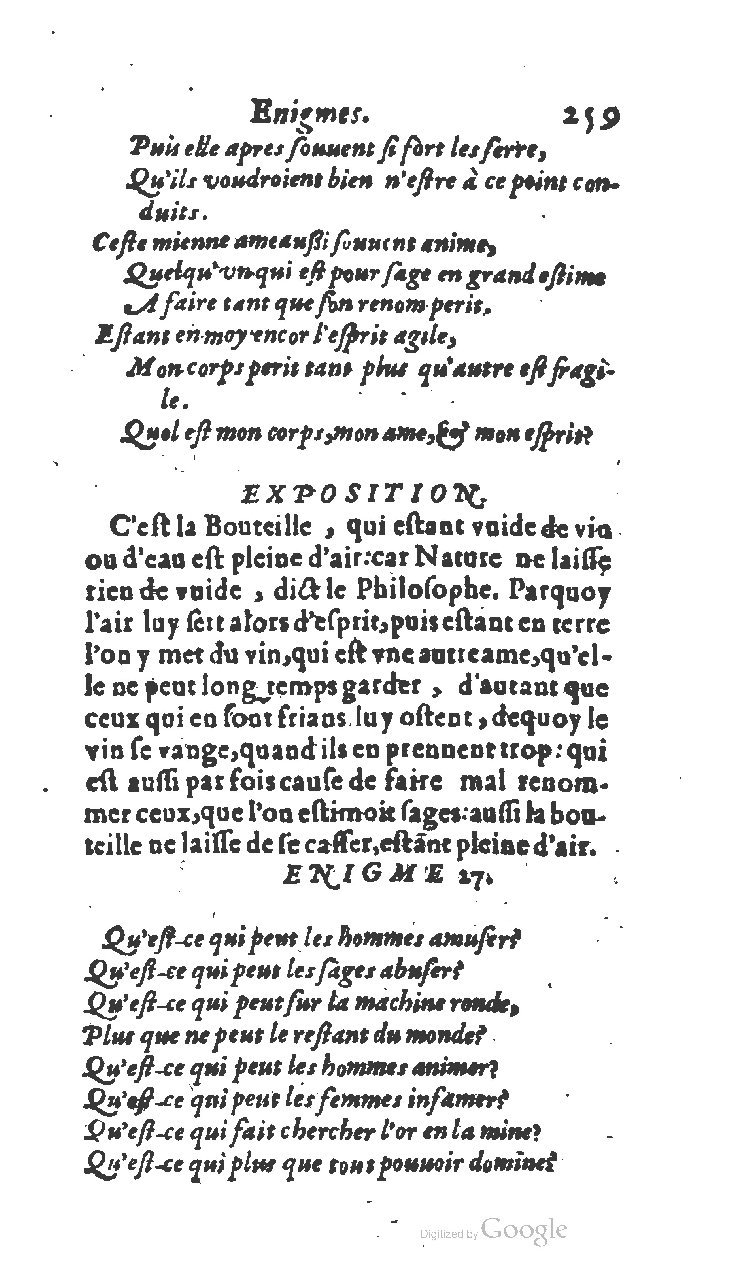 Enigmes. 259
Puis elle apres ſouuent ſi fort les ſerre,
Qu'ils voudroient bien n'eſtre à ce point con-
duits.
Ceſte mienne ame auſſi ſouuent anime,
Quelqu'vn qui eſt pour ſage en grand eſtime
A faire tant que ſon renom perit.
Eſtant en moy encor l'eſprit agile,
Mon corps perit tant plus qu'autre eſt fragi-
le.
Quel eſt mon corps, mon ame, & mon eſprit?
EXPOSITION.
C'eſt la Bouteille, qui eſtant vuide de vin
ou d'eau eſt pleine d'air: car Nature ne laiſſe
rien de vuide, dict le Philoſophe. Parquoy
l'air luy ſert alors d'eſprit, puis eſtant en terre
l'on y met du vin, qui eſt vne autre ame, qu'el-
le ne peut long temps garder, d'autant que
ceux qui en ſont frians luy oſtent, dequoy le
vin ſe vange, quand ils en prennent trop: qui
eſt auſſi par fois cauſe de faire mal renom-
mer ceux, que l'on eſtimoit ſages: auſſi la bou-
teille ne laiſſe de ſe caſſer, eſtāt pleine d'air.
ENIGME 27.
Qu'eſt-ce qui peut les hommes amuſer?
Qu'eſt-ce qui peut les ſages abuſer?
Qu'eſt-ce qui peut ſur la machine ronde,
Plus que ne peut le reſtant du monde?
Qu'eſt-ce qui peut les hommes animer?
Qu'eſt-ce qui peut les femmes infamer?
Qu'eſt-ce qui fait chercher l'or en la mine?
Qu'eſt-ce qui plus que tous pouuoir domine?
Digitized by Google